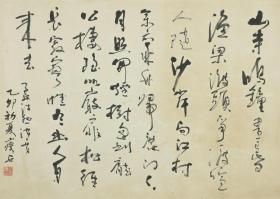 山寺鳴鐘晝已昏
漁梁渡頭爭渡喧
人隨沙岸向江村
余亦乘舟歸鹿門〻
月照開煙樹忽到龐
公棲隱處巖扉松徑
長寂寥惟有幽人自
來去 孟浩然
乙卯初夏